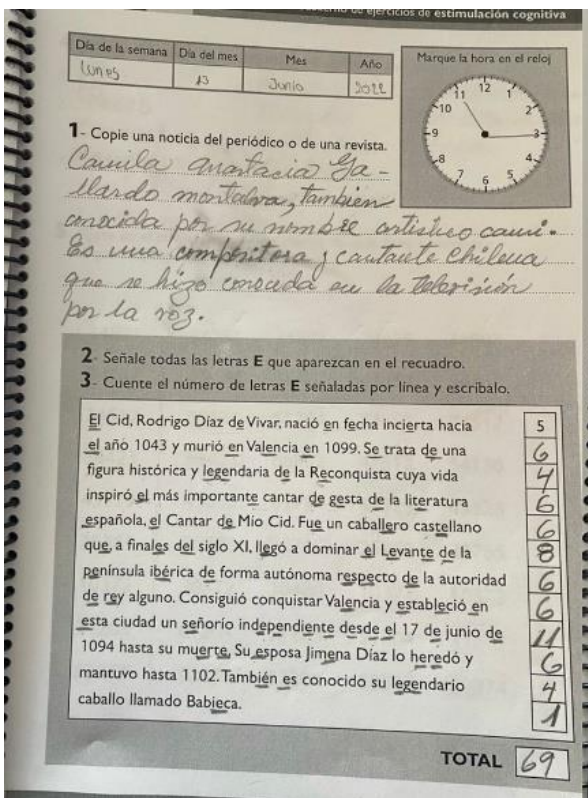 de ejercicios de estimulación cognitiva
Día de la semana Día del mes Mes Año
lunes 13 Junio 2022
Marque la hora en el reloj
12 1 2 3 4 5 6 7 8 9 10 11
1- Copie una noticia del periódico o de una revista.
Camila anastacia Ga-
llardo montalva, tambien
conocida por su nombre artistico cami.
Es una compositora y cantante Chilena
que se hizo conocida en la television
por la voz.
2- Señale todas las letras E que aparezcan en el recuadro.
3- Cuente el número de letras E señaladas por línea y escríbalo.
El Cid, Rodrigo Díaz de Vivar, nació en fecha incierta hacia 5
el año 1043 y murió en Valencia en 1099. Se trata de una 6
figura histórica y legendaria de la Reconquista cuya vida 4
inspiró el más importante cantar de gesta de la literatura 6
española, el Cantar de Mio Cid. Fue un caballero castellano 6
que, a finales del siglo XI, llegó a dominar el Levante de la 8
península ibérica de forma autónoma respecto de la autoridad 6
de rey alguno. Consiguió conquistar Valencia y estableció en 6
esta ciudad un señorío independiente desde el 17 de junio de 11
1094 hasta su muerte. Su esposa Jimena Díaz lo heredó y 6
mantuvo hasta 1102. También es conocido su legendario 4
caballo llamado Babieca. 1
TOTAL 69